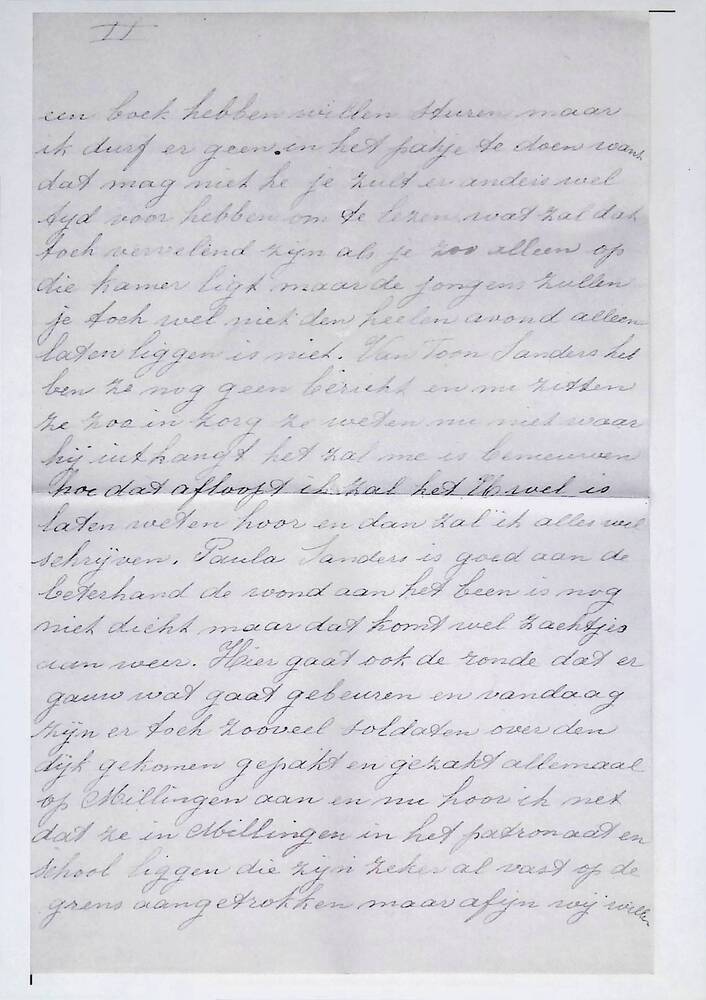 II
een boek hebben willen sturen maar
ik durf er geen in het pakje te doen want
dat mag niet he je zult er anders wel
tyd voor hebben om te lezen wat zal dat
toch vervelend zijn als je zoo alleen op
die kamer ligt maar de jongens zullen
je toch wel niet den heelen avond alleen
laten liggen is niet. Van Toon Sanders heb
ben ze nog geen bericht en nu zitten
ze zoo in zorg ze weten nu niet waar
hij uithangt het zal me is benieuwen
hoe dat afloopt ik zal het U wel is
laten weten hoor en dan zal ik alles wel
schrijven. Paula Sanders is goed aan de
beterhand de wond aan het been is nog
niet dicht maar dat komt wel zachtjes
aan weer. Hier gaat ook de ronde dat er
gauw wat gaat gebeuren en vandaag
zijn er toch zooveel soldaten over den
dijk gekomen gepakt en gezakt allemaal
op Millingen aan en nu hoor ik net
dat ze in Millingen in het patronaat en
school liggen die zijn zeker al vast op de
grens aangetrokken maar afijn wij willen